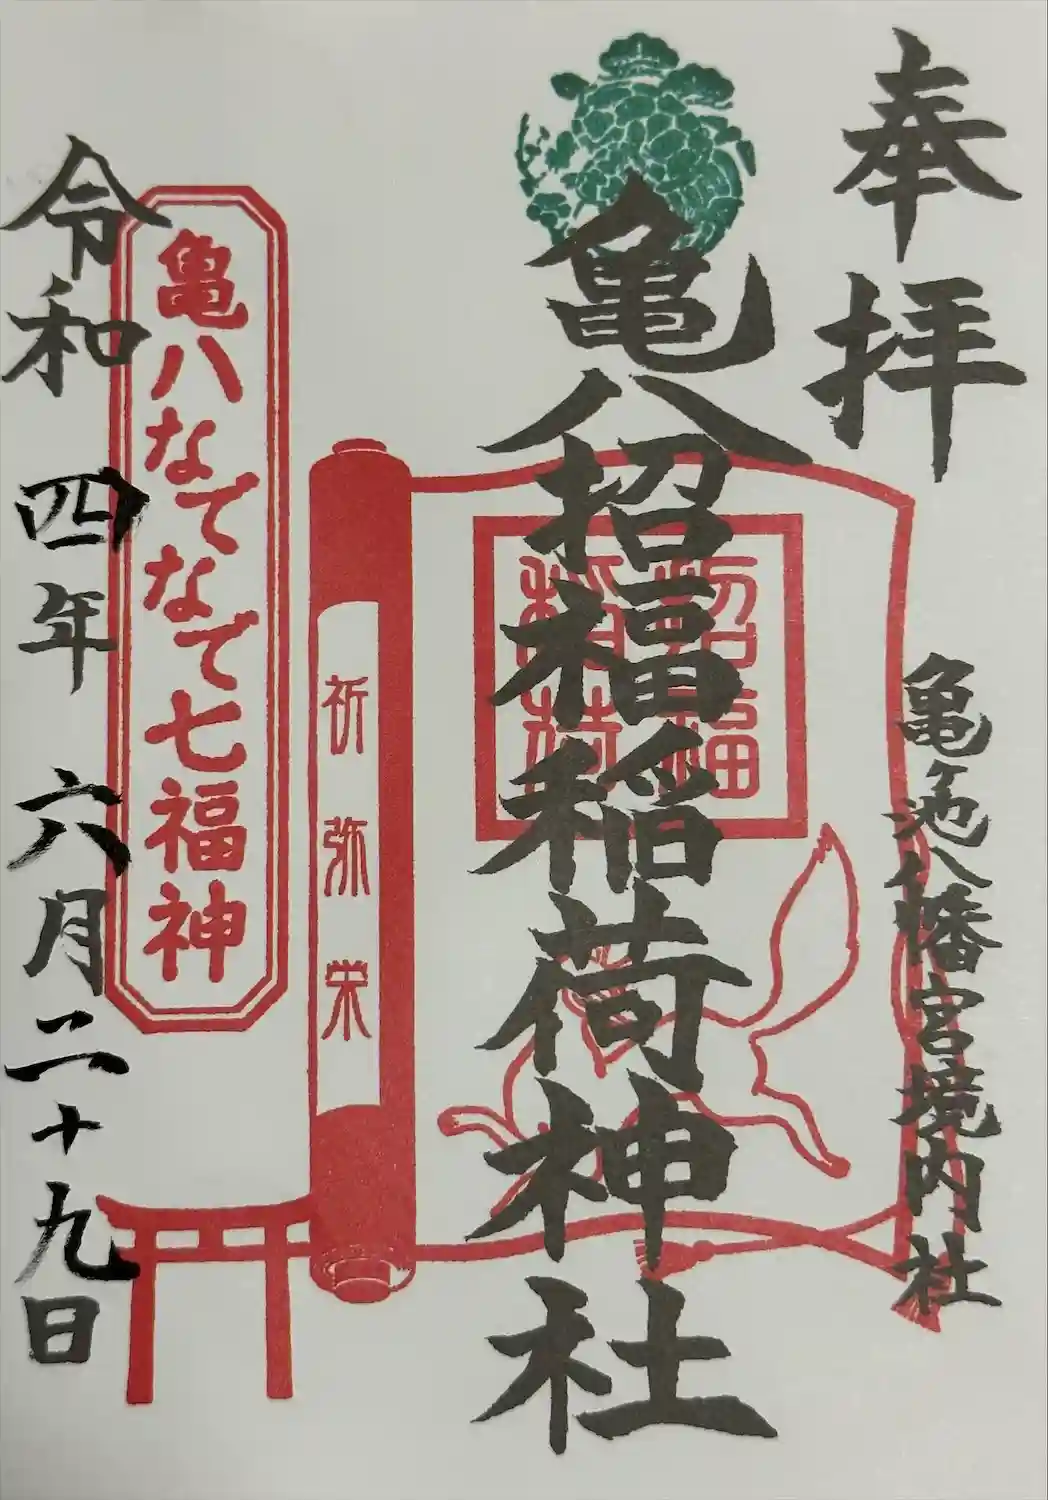 奉拝
亀ヶ池八幡宮境内社
亀八招福稲荷神社
招福
稲荷
祈弥栄
亀八なでなで七福神
令和四年六月二十九日